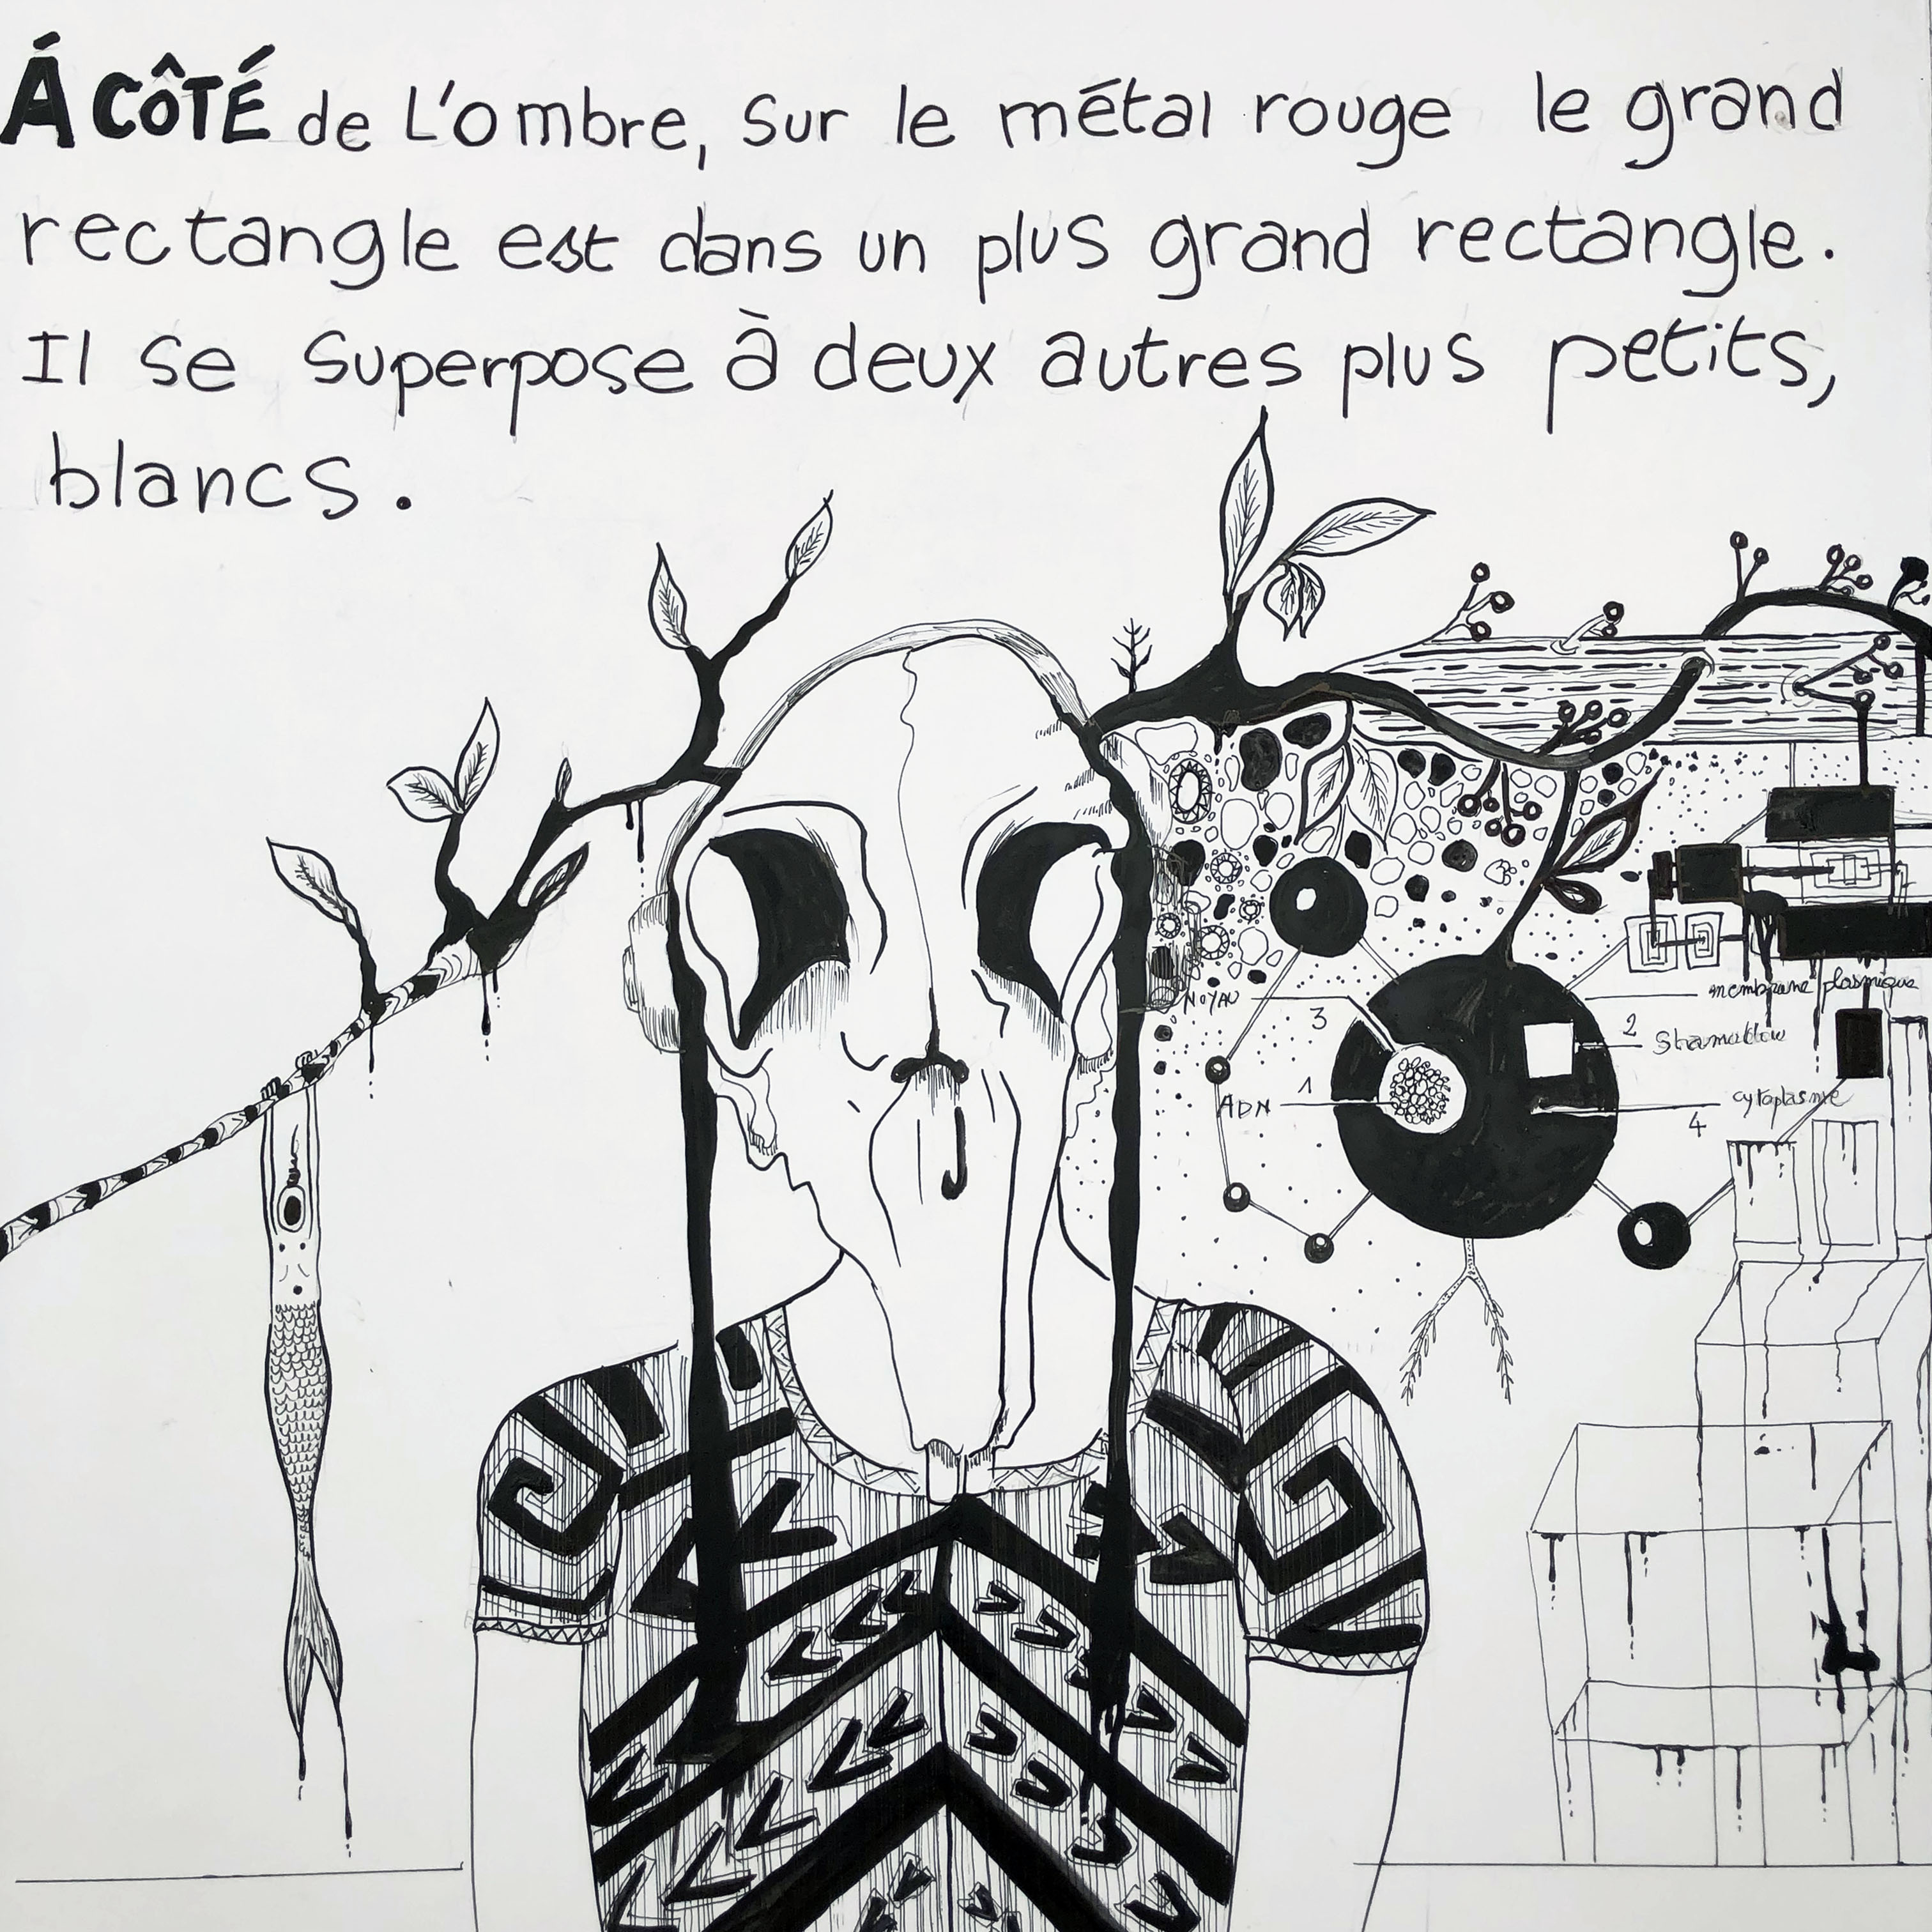 Á CÔTÉ de L'ombre, sur le métal rouge le grand
rectangle est dans un plus grand rectangle.
Il se superpose à deux autres plus petits,
blancs.
NOYAU
3
membrane plasmique
2
1
ADN
cytoplasme
4